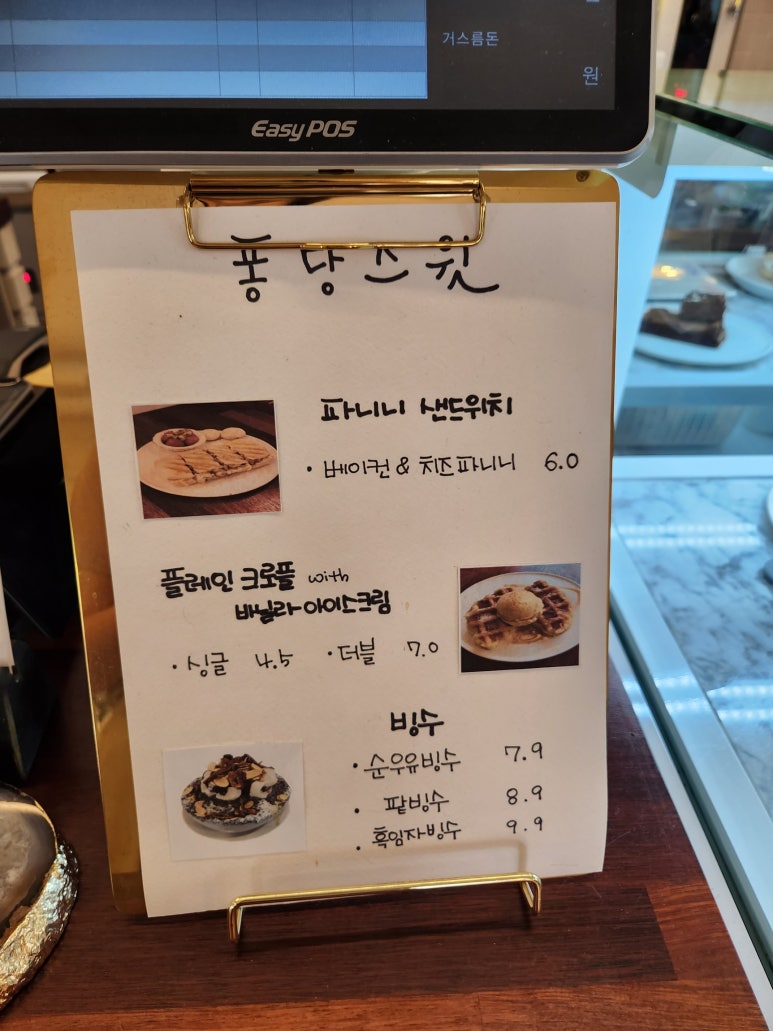 거스름돈
원
EasyPOS
퐁당스윗
파니니 샌드위치
• 베이컨 & 치즈파니니 6.0
플레인 크로플 with
바닐라 아이스크림
• 싱글 4.5 • 더블 7.0
빙수
• 순우유빙수 7.9
• 팥빙수 8.9
• 흑임자빙수 9.9